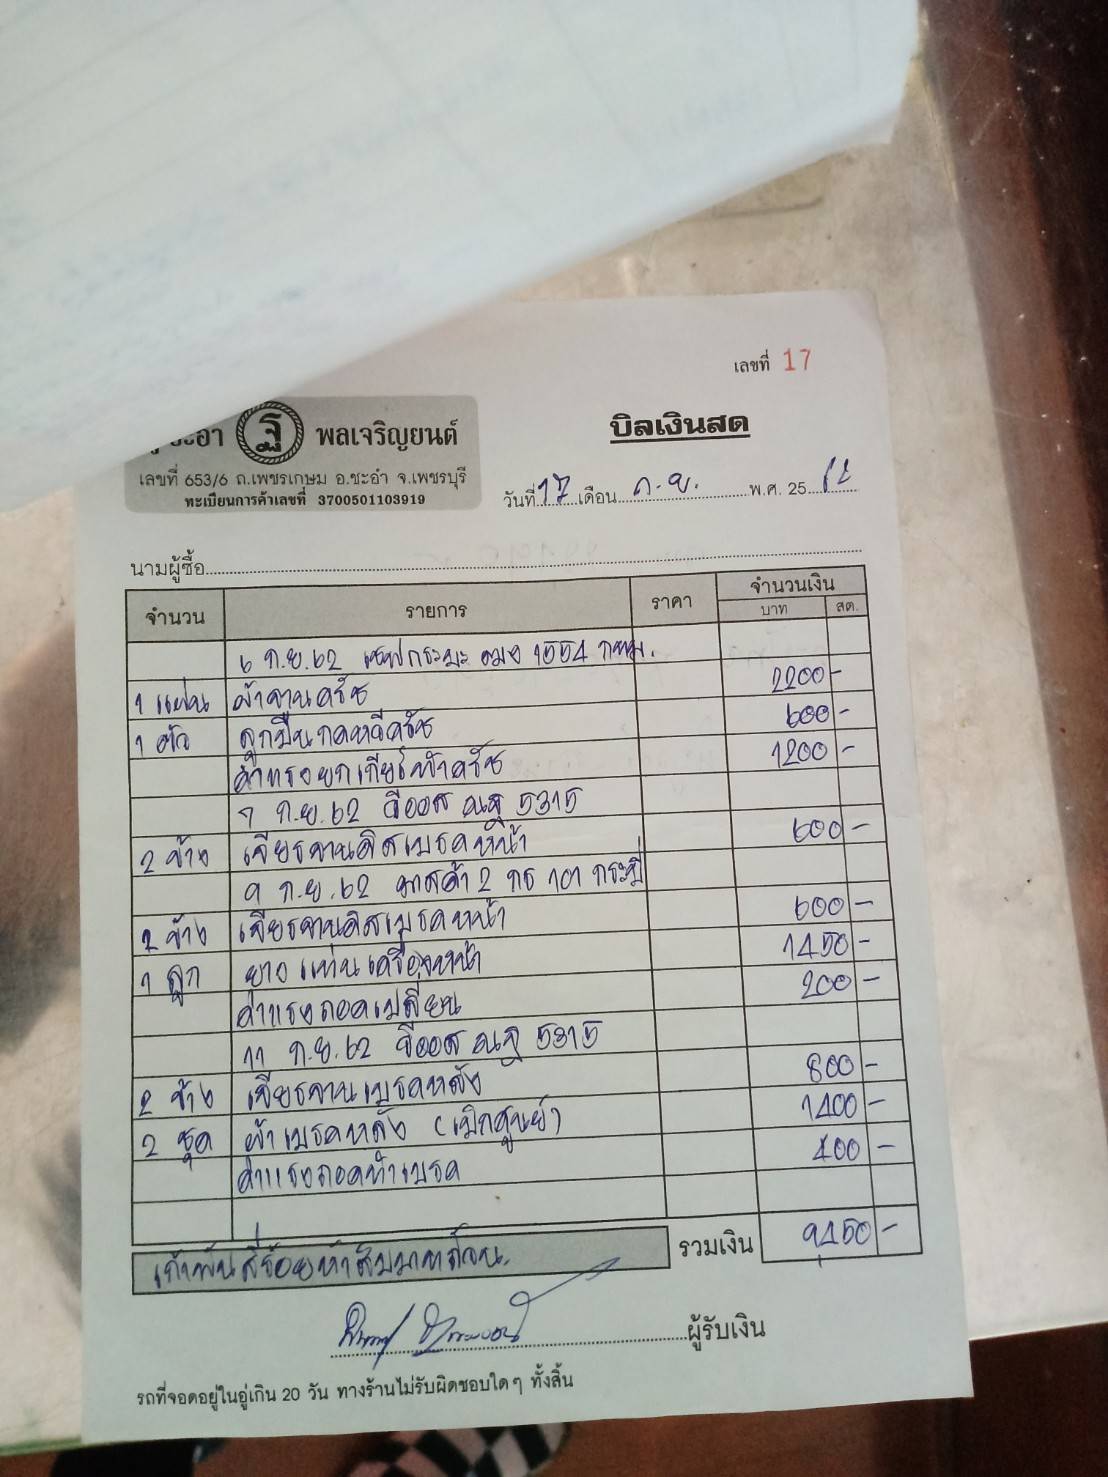 เลขที่ 17
ชะอำ ฐ พลเจริญยนต์
บิลเงินสด
เลขที่ 653/6 ถ.เพชรเกษม อ.ชะอำ จ.เพชรบุรี
ทะเบียนการค้าเลขที่ 3700501103919
วันที่ 17 เดือน ก.ย. พ.ศ. 25 62
นามผู้ซื้อ
จำนวน รายการ ราคา จำนวนเงิน
บาท สต.
6 ก.ย. 62 กระบะ 1554 กทม.
1 แผ่น ผ้าจานครัช 2200 -
1 ตัว ลูกปืนกดหวีครัช 600 -
ค่าแรงยกเกียร์ทำครัช 1200 -
7 ก.ย. 62 วีออส 5315
2 ข้าง เจียรจานดิสเบรคหน้า 600 -
9 ก.ย. 62 มาสด้า 2 กธ 101 กระบี่
2 ข้าง เจียรจานดิสเบรคหน้า 600 -
1 ลูก ยางแท่นเครื่องหน้า 1450 -
ค่าแรงถอดเปลี่ยน 200 -
11 ก.ย. 62 วีออส 5315
2 ข้าง เจียรจานเบรคหลัง 800 -
2 ชุด ผ้าเบรคหลัง (เบิกศูนย์) 1400 -
ค่าแรงถอดทำเบรค 400 -
เก้าพันสี่ร้อยห้าสิบบาทถ้วน. รวมเงิน 9450 -
ผู้รับเงิน
รถที่จอดอยู่ในอู่เกิน 20 วัน ทางร้านไม่รับผิดชอบใดๆ ทั้งสิ้น